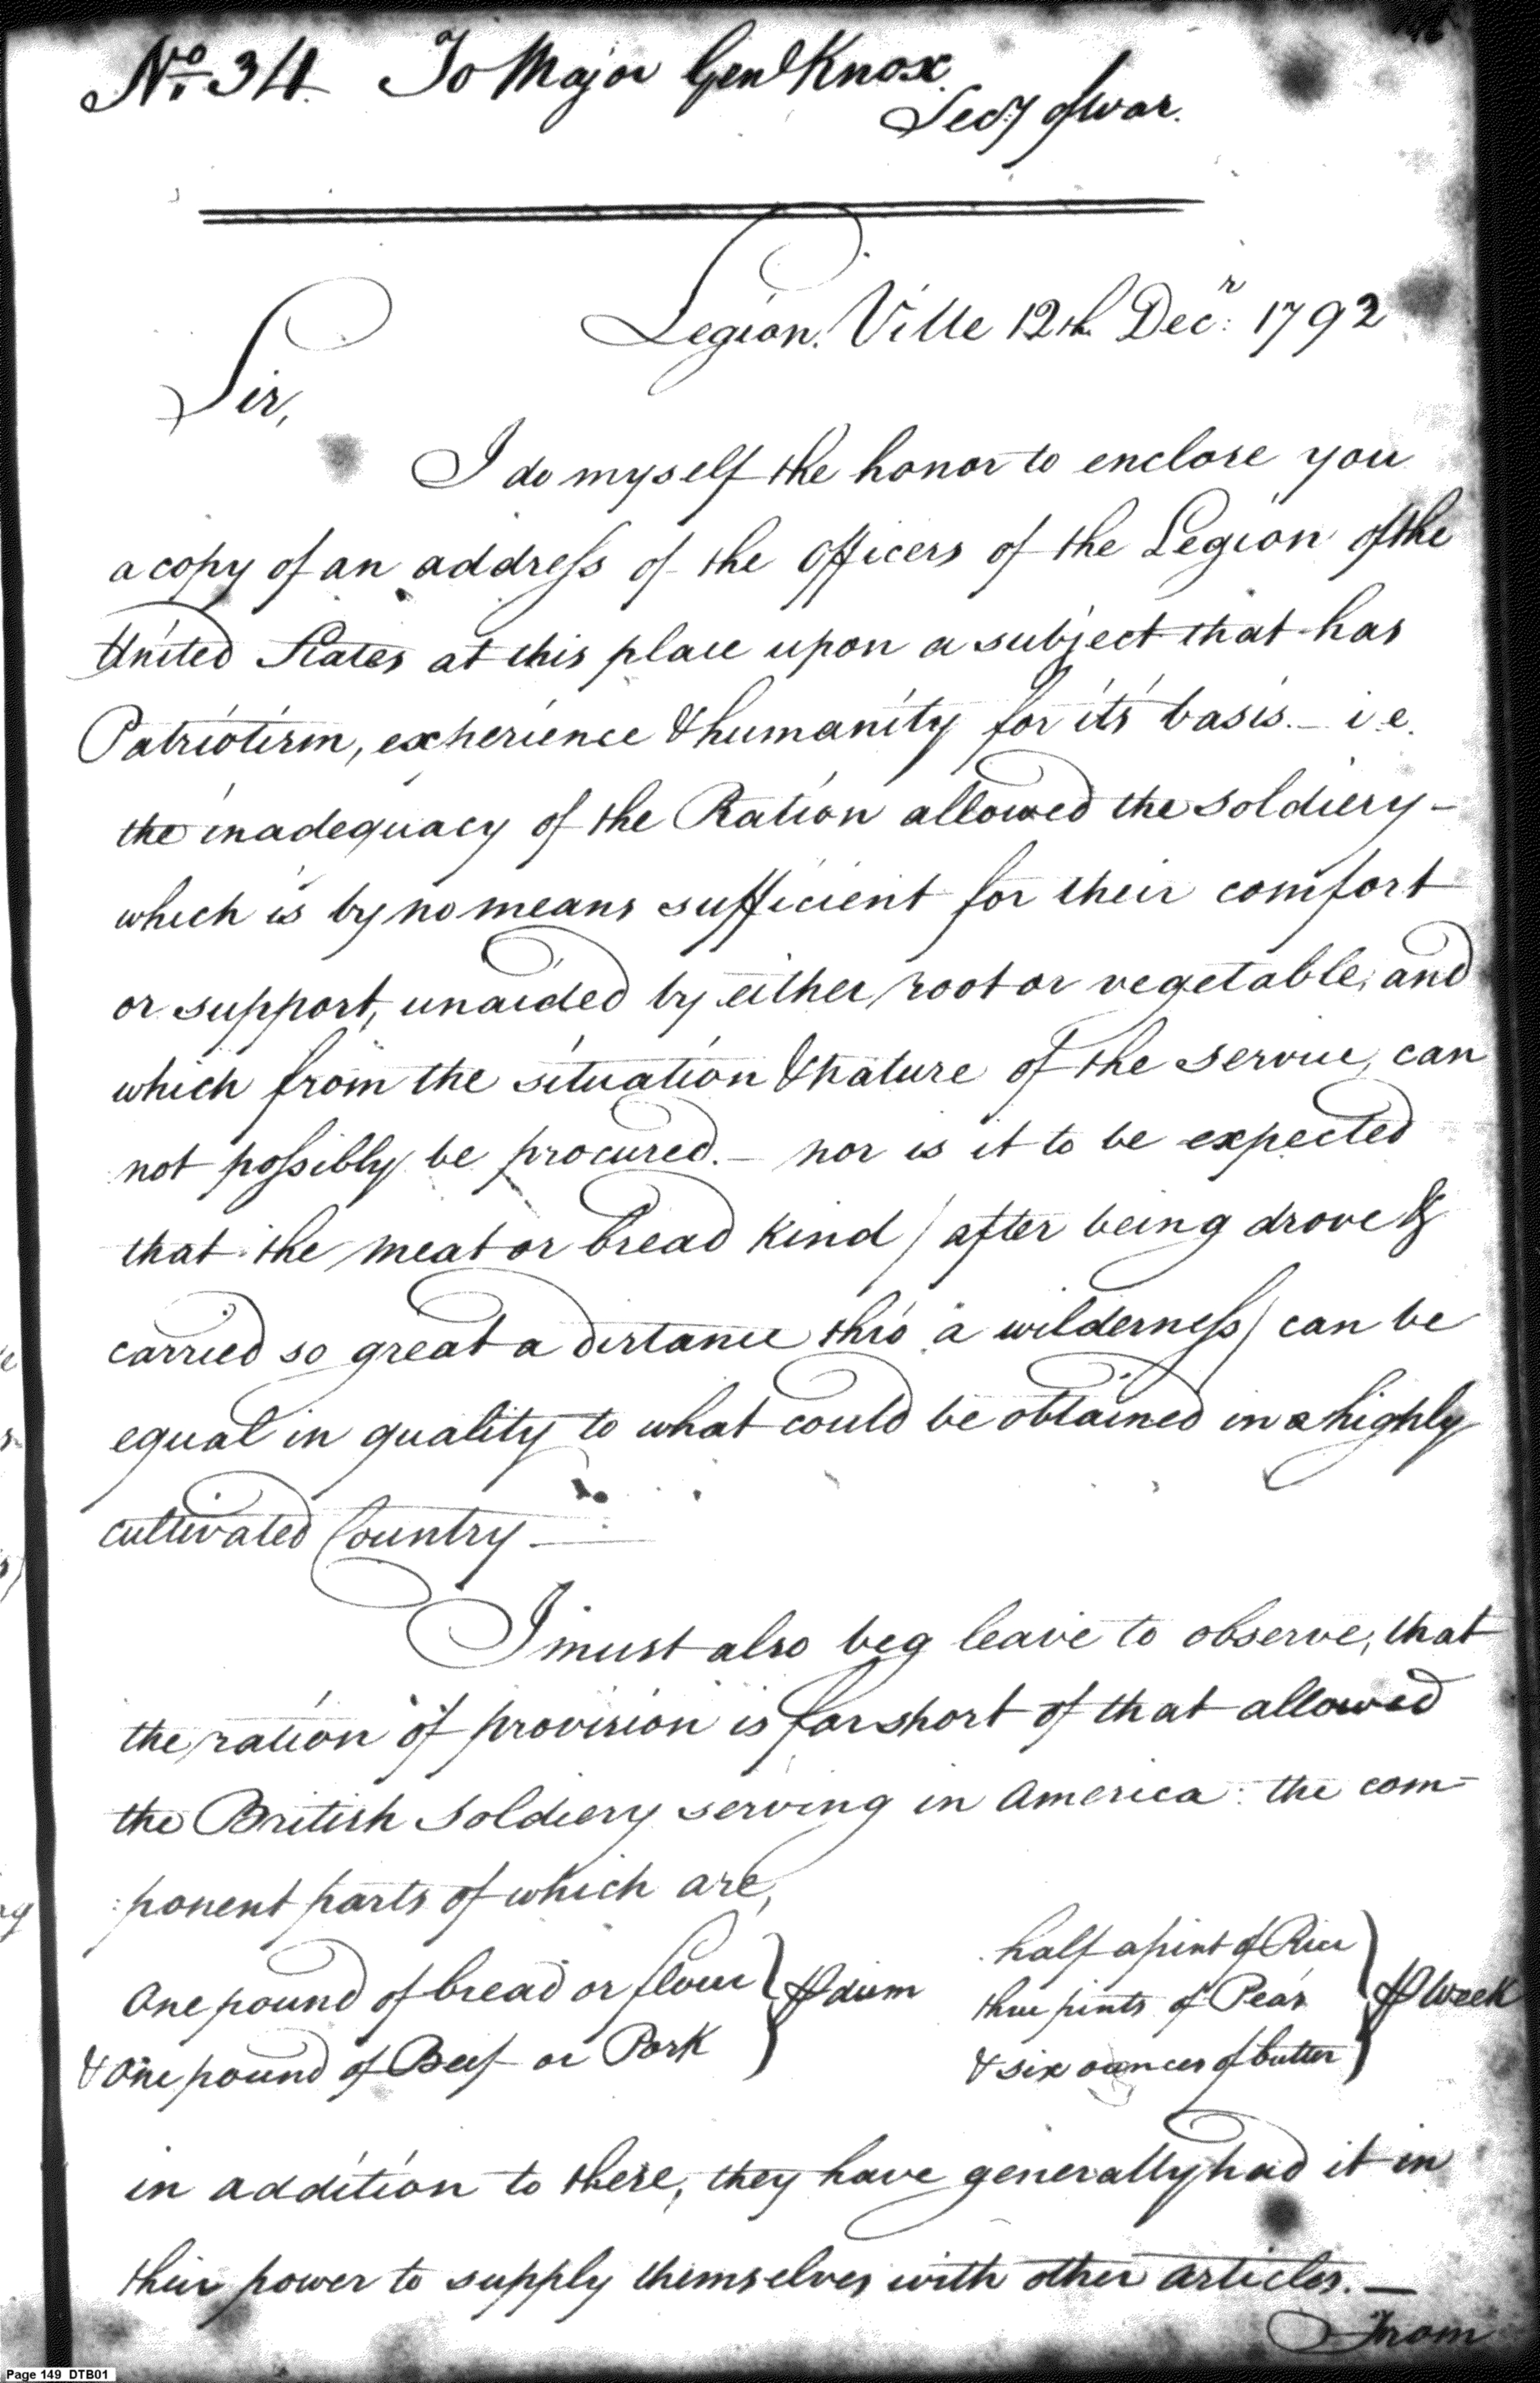 No. 34. To Major Genl Knox.
Secy of War.
Legion. Ville 12th Decr: 1792
Sir,
I do myself the honor to enclose you
a copy of an address of the Officers of the Legion of the
United States at this place upon a subject that has
Patriotism, experience & humanity for it's basis. — i.e.
the inadequacy of the Ration allowed the soldiery —
which is by no means sufficient for their comfort
or support, unaided by either root or vegetable, and
which from the situation & nature of the service, can
not possibly be procured. — nor is it to be expected
that the meat or bread kind / after being drove &
carried so great a distance thro' a wilderness / can be
equal in quality to what could be obtained in a highly
cultivated Country —
I must also beg leave to observe, that
the ration of provision is far short of that allowed
the British Soldiery serving in America: the com=
:ponent parts of which are,
One pound of bread or flour
& One pound of Beef or Pork } ⅌ diem
half a pint of Rice
three pints of Peas
& six ounces of butter } ⅌ Week
in addition to these, they have generally had it in
their power to supply themselves with other articles. —
From
Page 149 DTB01